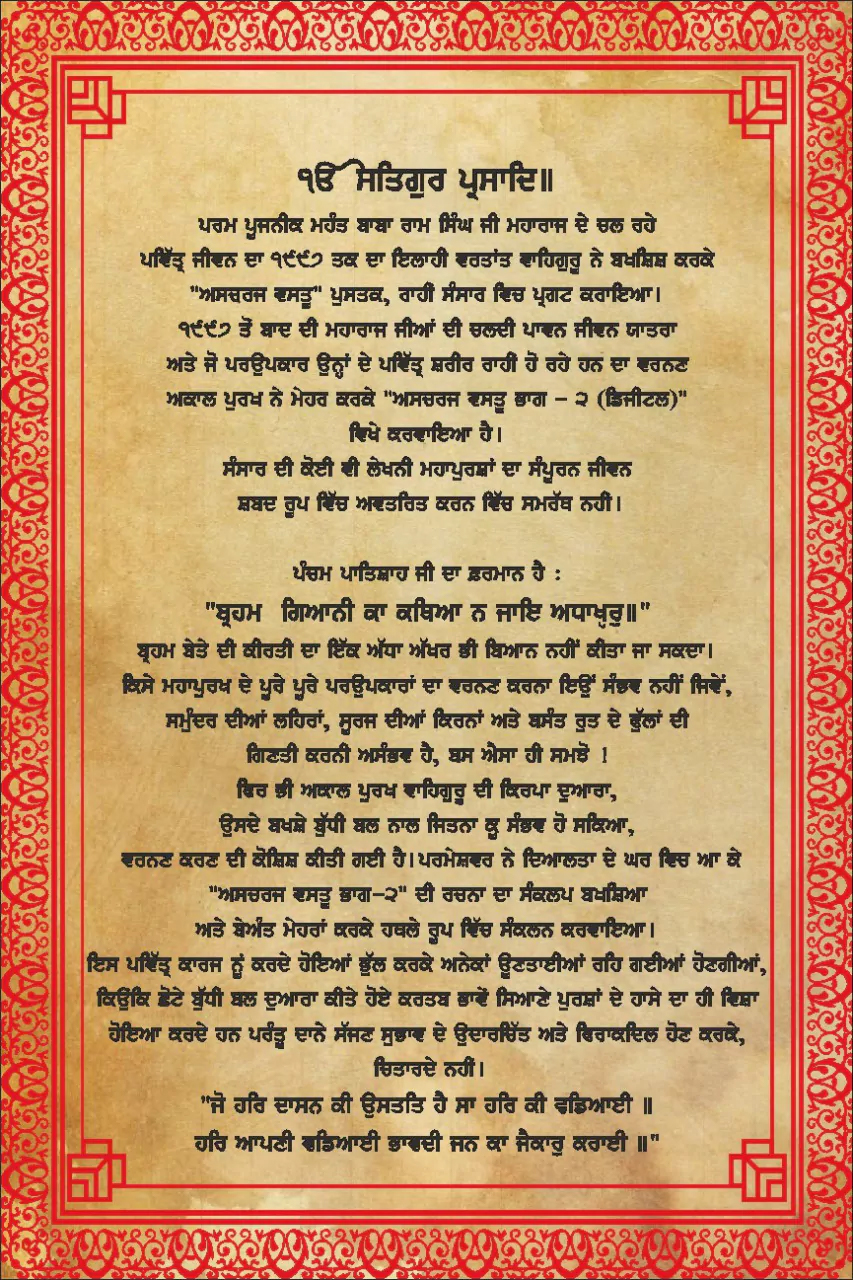 ੴ ਸਤਿਗੁਰ ਪ੍ਰਸਾਦਿ॥
ਪਰਮ ਪੂਜਨੀਕ ਮਹੰਤ ਬਾਬਾ ਰਾਮ ਸਿੰਘ ਜੀ ਮਹਾਰਾਜ ਦੇ ਚਲ ਰਹੇ
ਪਵਿੱਤ੍ਰ ਜੀਵਨ ਦਾ ੧੯੯੭ ਤਕ ਦਾ ਇਲਾਹੀ ਵਰਤਾਂਤ ਵਾਹਿਗੁਰੂ ਨੇ ਬਖਸ਼ਿਸ਼ ਕਰਕੇ
"ਅਸਚਰਜ ਵਸਤੂ" ਪੁਸਤਕ, ਰਾਹੀਂ ਸੰਸਾਰ ਵਿਚ ਪ੍ਰਗਟ ਕਰਾਇਆ।
੧੯੯੭ ਤੋਂ ਬਾਦ ਦੀ ਮਹਾਰਾਜ ਜੀਆਂ ਦੀ ਚਲਦੀ ਪਾਵਨ ਜੀਵਨ ਯਾਤਰਾ
ਅਤੇ ਜੋ ਪਰਉਪਕਾਰ ਉਨ੍ਹਾਂ ਦੇ ਪਵਿੱਤ੍ਰ ਸ਼ਰੀਰ ਰਾਹੀਂ ਹੋ ਰਹੇ ਹਨ ਦਾ ਵਰਨਣ
ਅਕਾਲ ਪੁਰਖ ਨੇ ਮੇਹਰ ਕਰਕੇ "ਅਸਚਰਜ ਵਸਤੂ ਭਾਗ - ੨ (ਡਿਜੀਟਲ)"
ਵਿਖੇ ਕਰਵਾਇਆ ਹੈ।
ਸੰਸਾਰ ਦੀ ਕੋਈ ਵੀ ਲੇਖਨੀ ਮਹਾਪੁਰਸ਼ਾਂ ਦਾ ਸੰਪੂਰਨ ਜੀਵਨ
ਸ਼ਬਦ ਰੂਪ ਵਿੱਚ ਅਵਤਰਿਤ ਕਰਨ ਵਿੱਚ ਸਮਰੱਥ ਨਹੀ।
ਪੰਚਮ ਪਾਤਿਸ਼ਾਹ ਜੀ ਦਾ ਫ਼ਰਮਾਨ ਹੈ :
"ਬ੍ਰਹਮ ਗਿਆਨੀ ਕਾ ਕਥਿਆ ਨ ਜਾਇ ਅਧਾਖ੍ਯਰੁ॥"
ਬ੍ਰਹਮ ਬੇਤੇ ਦੀ ਕੀਰਤੀ ਦਾ ਇੱਕ ਅੱਧਾ ਅੱਖਰ ਭੀ ਬਿਆਨ ਨਹੀਂ ਕੀਤਾ ਜਾ ਸਕਦਾ।
ਕਿਸੇ ਮਹਾਪੁਰਖ ਦੇ ਪੂਰੇ ਪੂਰੇ ਪਰਉਪਕਾਰਾਂ ਦਾ ਵਰਨਣ ਕਰਨਾ ਇਉਂ ਸੰਭਵ ਨਹੀਂ ਜਿਵੇਂ,
ਸਮੁੰਦਰ ਦੀਆਂ ਲਹਿਰਾਂ, ਸੂਰਜ ਦੀਆਂ ਕਿਰਨਾਂ ਅਤੇ ਬਸੰਤ ਰੁਤ ਦੇ ਫੁੱਲਾਂ ਦੀ
ਗਿਣਤੀ ਕਰਨੀ ਅਸੰਭਵ ਹੈ, ਬਸ ਐਸਾ ਹੀ ਸਮਝੋ !
ਫਿਰ ਭੀ ਅਕਾਲ ਪੁਰਖ ਵਾਹਿਗੁਰੂ ਦੀ ਕਿਰਪਾ ਦੁਆਰਾ,
ਉਸਦੇ ਬਖਸ਼ੇ ਬੁੱਧੀ ਬਲ ਨਾਲ ਜਿਤਨਾ ਕੂ ਸੰਭਵ ਹੋ ਸਕਿਆ,
ਵਰਨਣ ਕਰਣ ਦੀ ਕੋਸ਼ਿਸ਼ ਕੀਤੀ ਗਈ ਹੈ। ਪਰਮੇਸ਼ਵਰ ਨੇ ਦਿਆਲਤਾ ਦੇ ਘਰ ਵਿਚ ਆ ਕੇ
"ਅਸਚਰਜ ਵਸਤੂ ਭਾਗ-੨" ਦੀ ਰਚਨਾ ਦਾ ਸੰਕਲਪ ਬਖਸ਼ਿਆ
ਅਤੇ ਬੇਅੰਤ ਮੇਹਰਾਂ ਕਰਕੇ ਹਥਲੇ ਰੂਪ ਵਿੱਚ ਸੰਕਲਨ ਕਰਵਾਇਆ।
ਇਸ ਪਵਿੱਤ੍ਰ ਕਾਰਜ ਨੂੰ ਕਰਦੇ ਹੋਇਆਂ ਭੁੱਲ ਕਰਕੇ ਅਨੇਕਾਂ ਊਣਤਾਈਆਂ ਰਹਿ ਗਈਆਂ ਹੋਣਗੀਆਂ,
ਕਿਉਂਕਿ ਛੋਟੇ ਬੁੱਧੀ ਬਲ ਦੁਆਰਾ ਕੀਤੇ ਹੋਏ ਕਰਤਬ ਭਾਵੇਂ ਸਿਆਣੇ ਪੁਰਸ਼ਾਂ ਦੇ ਹਾਸੇ ਦਾ ਹੀ ਵਿਸ਼ਾ
ਹੋਇਆ ਕਰਦੇ ਹਨ ਪਰੰਤੂ ਦਾਨੇ ਸੱਜਣ ਸੁਭਾਵ ਦੇ ਉਦਾਰਚਿੱਤ ਅਤੇ ਫਿਰਾਕਦਿਲ ਹੋਣ ਕਰਕੇ,
ਚਿਤਾਰਦੇ ਨਹੀਂ।
"ਜੋ ਹਰਿ ਦਾਸਨ ਕੀ ਉਸਤਤਿ ਹੈ ਸਾ ਹਰਿ ਕੀ ਵਡਿਆਈ ॥
ਹਰਿ ਆਪਣੀ ਵਡਿਆਈ ਭਾਵਦੀ ਜਨ ਕਾ ਜੈਕਾਰੁ ਕਰਾਈ ॥"